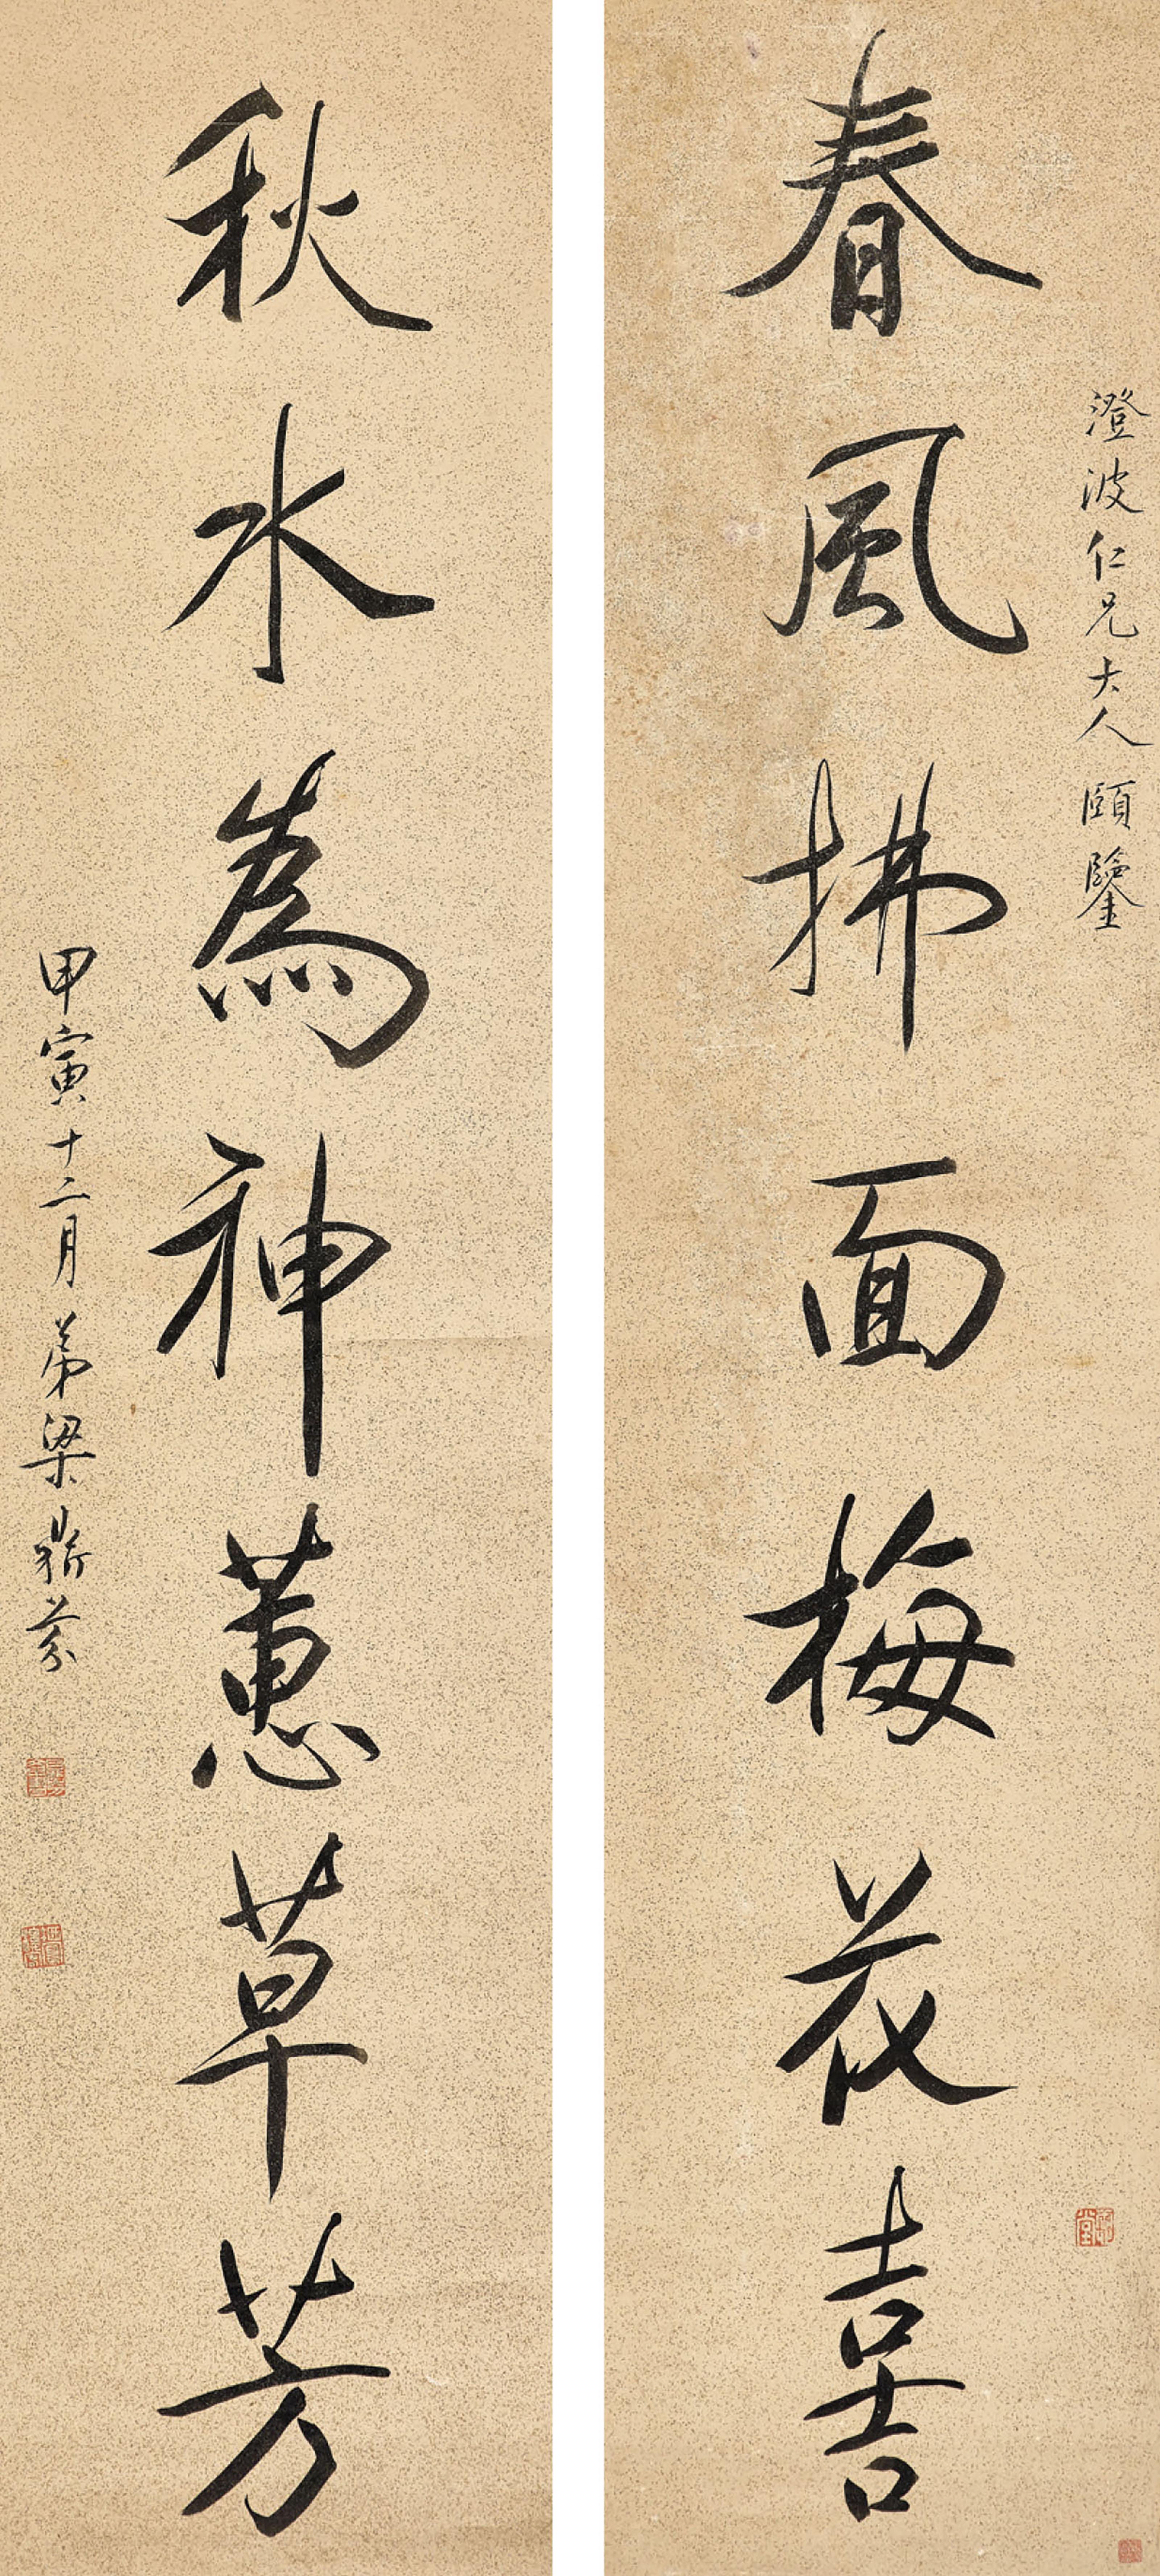 澄波仁兄大人頤鑒
春風拂面梅花喜
秋水為神蕙草芳
甲寅十二月弟梁鼎芬